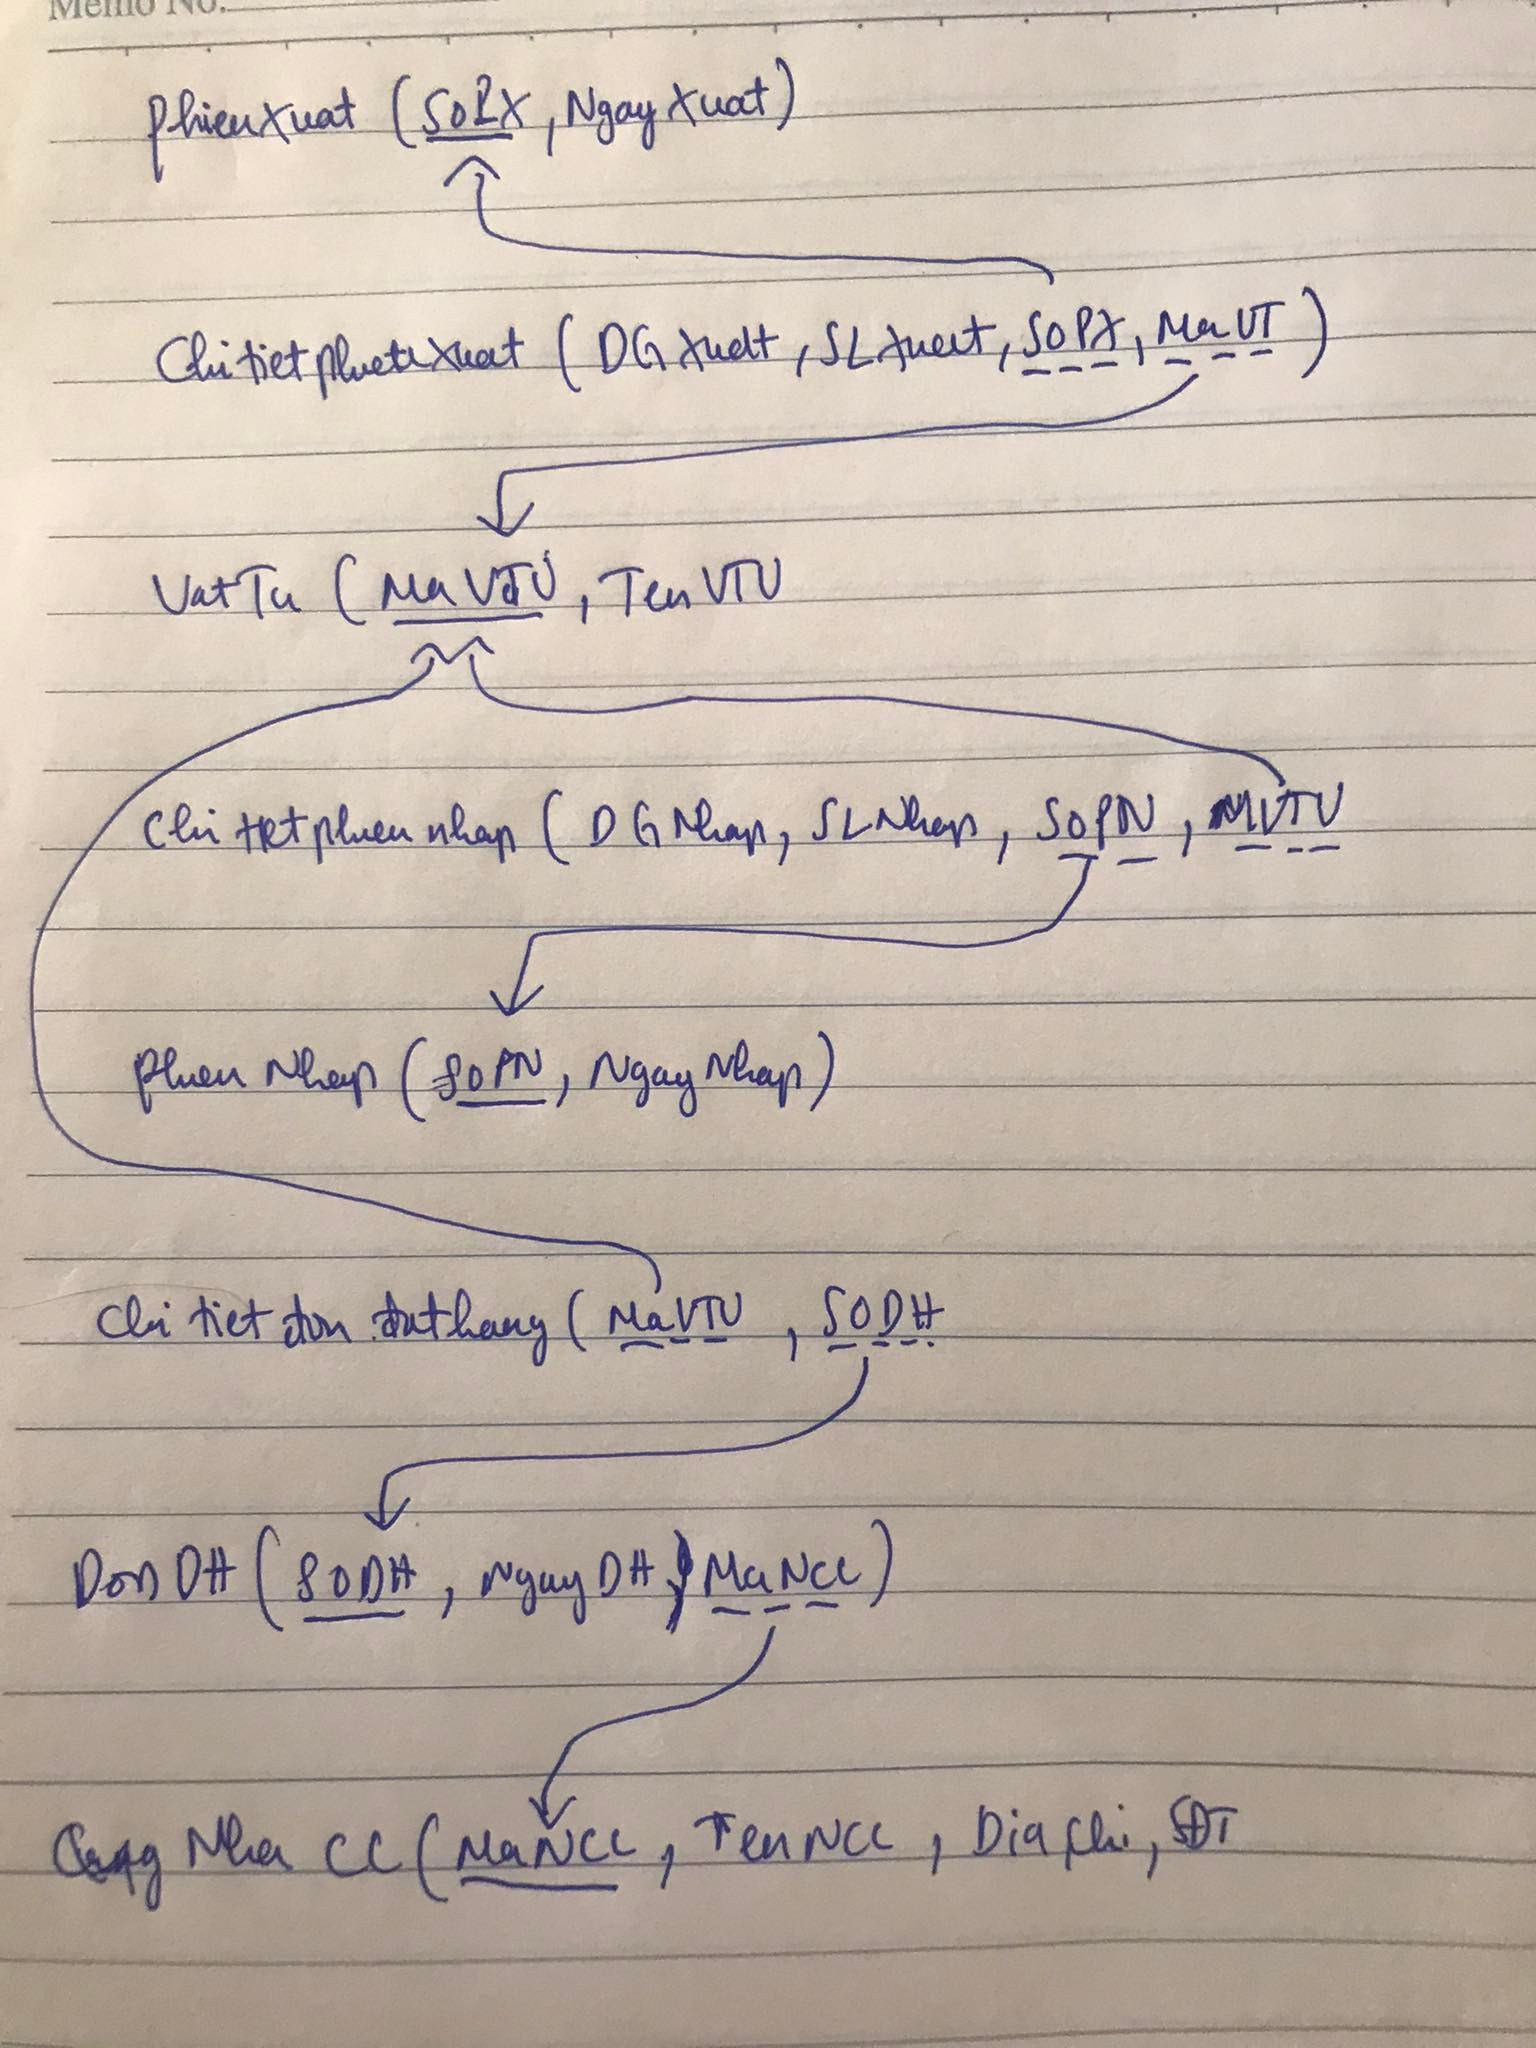 Memo No.
PhieuXuat (SOPX, NgayXuat)
Chitietphieuxuat (DGXuat, SLXuat, SOPX, MaVT)
VatTu (MaVTU, TenVTU
Chitietphieunhap (DGNhap, SLNhap, SOPN, MVTU
PhieuNhap (SOPN, NgayNhap)
Chi tiet don dathang (MaVTU, SODH
DonDH (SODH, NgayDH, MaNCC)
Nha CC (MaNCC, TenNCC, DiaChi, SDT